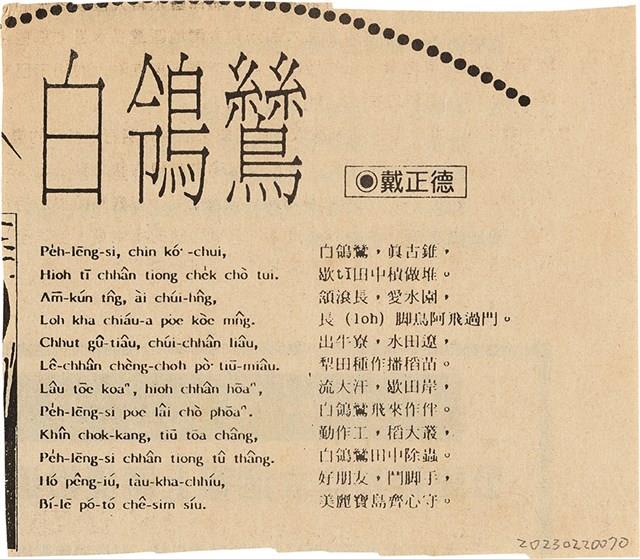 白鴒鷥
◉戴正德
Pe̍h-lēng-si, chin kó͘-chui,
Hioh tī chhân tiong che̍k chò tui.
Ām-kún tn̂g, ài chúi-hn̂g,
Loh kha chiáu-a poe kòe mn̂g.
Chhut gû-tiâu, chúi-chhân liâu,
Lê-chhân chèng-choh pò͘ tiū-miâu.
Lâu tōe koaⁿ, hioh chhân hōaⁿ,
Pe̍h-lēng-si poe lâi chò phōaⁿ.
Khîn chok-kang, tiū tōa châng,
Pe̍h-lēng-si chhân tiong tû thâng.
Hó pêng-iú, tàu-kha-chhíu,
Bí-lē pó-tó chê-sim síu.
白鴒鷥，眞古錐，
歇tī田中積做堆。
頷滾長，愛水園，
長 (loh) 脚鳥阿飛過門。
出牛寮，水田遼，
犁田種作播稻苗。
流大汗，歇田岸，
白鴒鷥飛來作伴。
勤作工，稻大叢，
白鴒鷥田中除蟲。
好朋友，鬥脚手，
美麗寶島齊心守。
20230220070